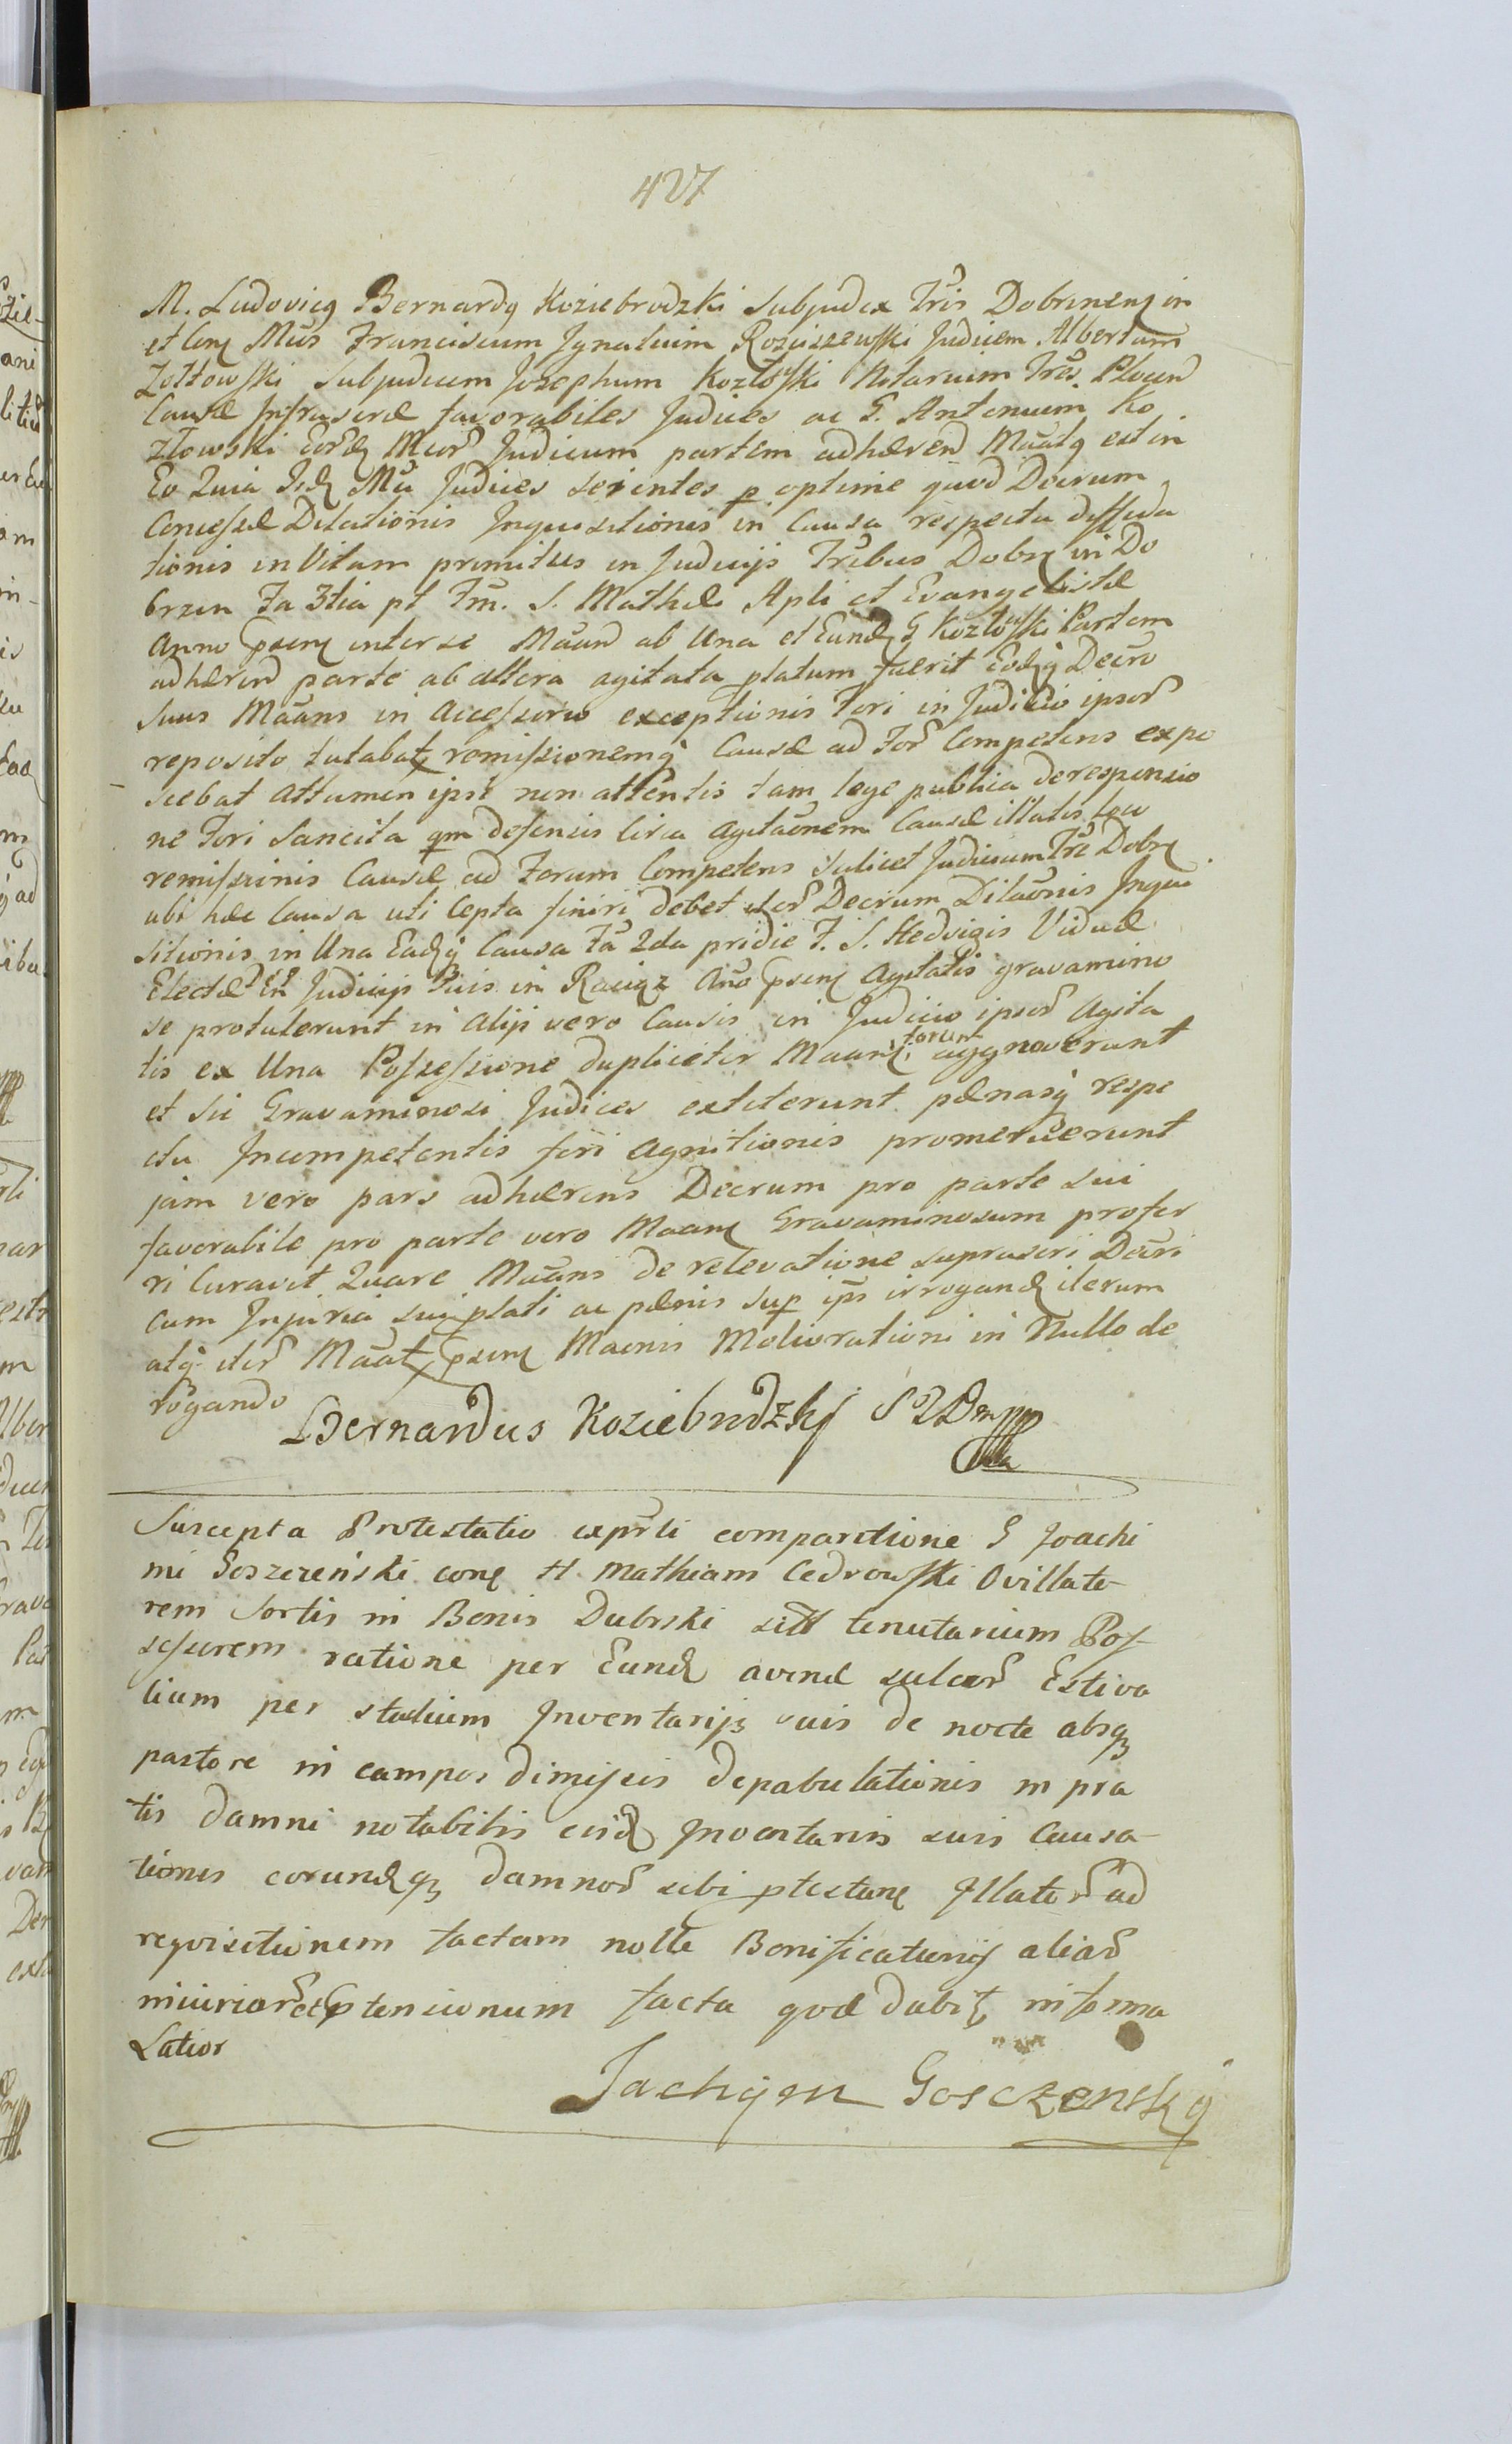 427
M. Ludovicq Bernardq Koziebrodzki Subjudex Tris Dobrinenq in
et Conq Mūs Franciscum Jgnatium Rosciszewski Judicem Albertum
Zołtowski Subjudicem Josephum Kozłoski Notarium Trēs. Plocen
Causæ Jnfrascræ favorabiles Judices ac G. Antonium Ko
złowski Eorđ Muor Judicum partem adhæren Māatq est in
Eo Quia Jid Mū Judices scientes p optime quod Decrum
Concessæ Dilationis Jnquisitionis in Causa respectu diffida
tionis in Vitam primitus in Judicijs Trībus Dobrz in Do
brzyn Fa 3tia pt Fm. S. Mathæi Apli et Evangelistæ
Anno psenq inter se Māan ab Una et Eund G Kozłoski Partem
adhæren parte ab altera agitata platum fuerit Eodq Decro
suus Māans in Accessorio exceptionis Fori in Judicio ipsor
reposito tutabatq remissionemq Causæ ad For Competens expo
scebat Attamen ipsi non attentis tam lege publica de responsio
ne Fori Sancita qm defensis circa Agitaōnem Causæ illatis
remissionis Causæ ad Forum Competens scilicet Judicium Tr̄e Dobrz
ubi hæc Causa uti Cepta finiri debet Decrum Dilaōnis Jnqui
sitionis in Una Eadq Causa Fa 2da pridie F. S. Hedvigis Viduæ
Electæ in Judicijs in Raciąz Año psenq Agitatis gravamino
se protulerunt in Alijs vero Causis in Judicio ipsor Agita
tis ex Una Possessione dupliciter Māanq forum aggnoverunt
et sic Gravaminosi Judices extiterunt pænasq respe
ctu Jncompetentis fori Agnitionis promeruerunt
jam vero pars adhærens Decrum pro parte sui
favorabile pro parte vero Māanq Gravaminosum profer
ri Curavit Quare Māans de relevatione suprascri Decri
cum Jnjuria sui plati ac pænis sup ips irrogand iterum
atq iter Māatq psenq Maenis Meliorationi in Nullo de
rogando
Bernardus Koziebrodzkj S Z D mpp
Suscepta Protestatio expr̄li comparitione G Joachi
mi Goszczeński conq H. Mathiam Cedrowski Ovillato-
rem Sortis in Bonis Dubrski seu tenutarium Pos-
sessorem ratione per Eund avenæ sulcor Estiva
lium per studium Jnventarijs suis de nocte absq
pastore in campos dimissis depabulationis in pra
tis damni notabilis eisd Jnventariis suis Causa-
tionis eorundq damnor sibi ptestanq Jllator ad
requisitionem factam nolle Bonificationis aliar
iniuriar et ptensionum facta quæ dabitq in forma
Latior
Jachym Gosczenskÿ